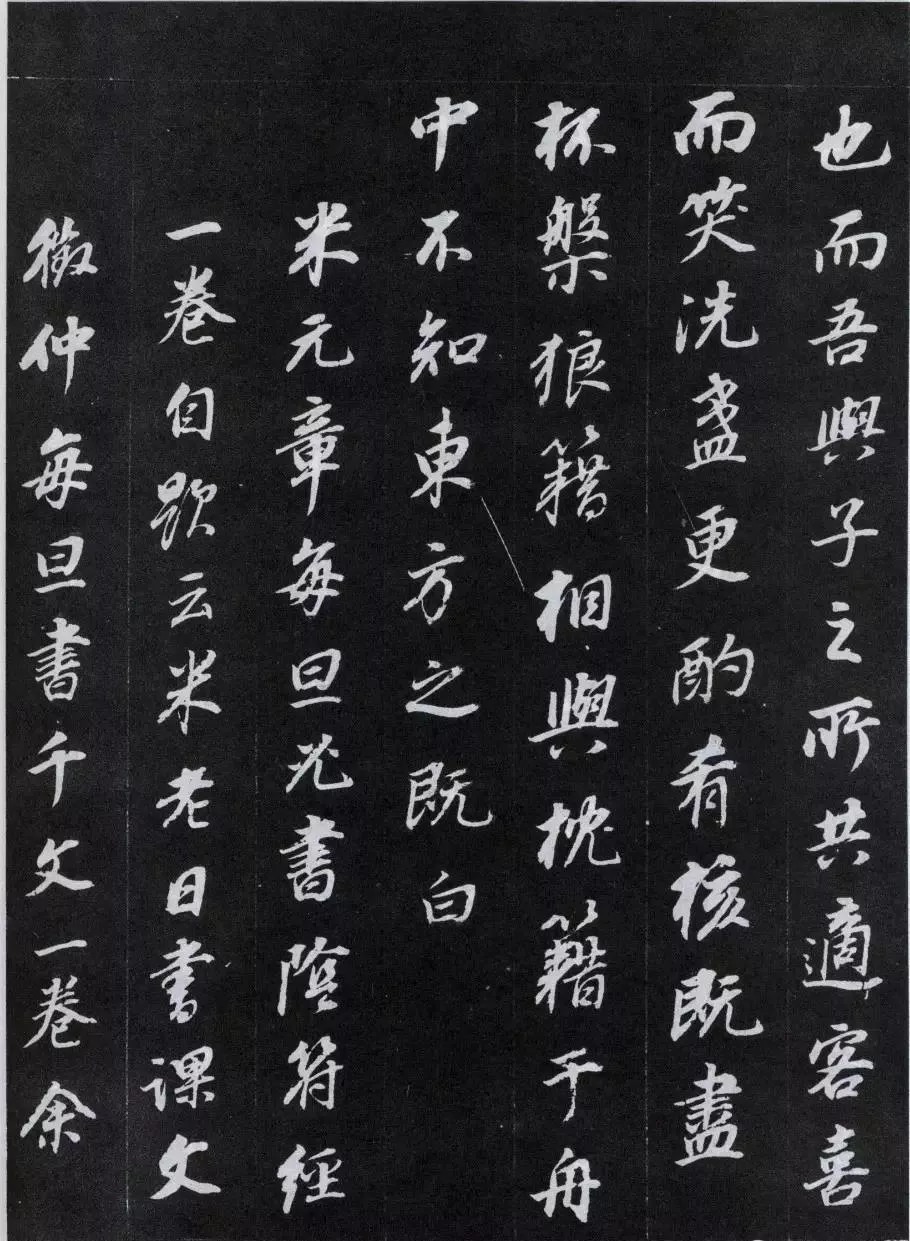 也而吾與子之所共適客喜
而笑洗盞更酌肴核既盡
杯槃狼籍相與枕籍于舟
中不知東方之既白
米元章每旦必書陰符經
一卷自題云米老日書課文
徵仲每旦書千文一卷余